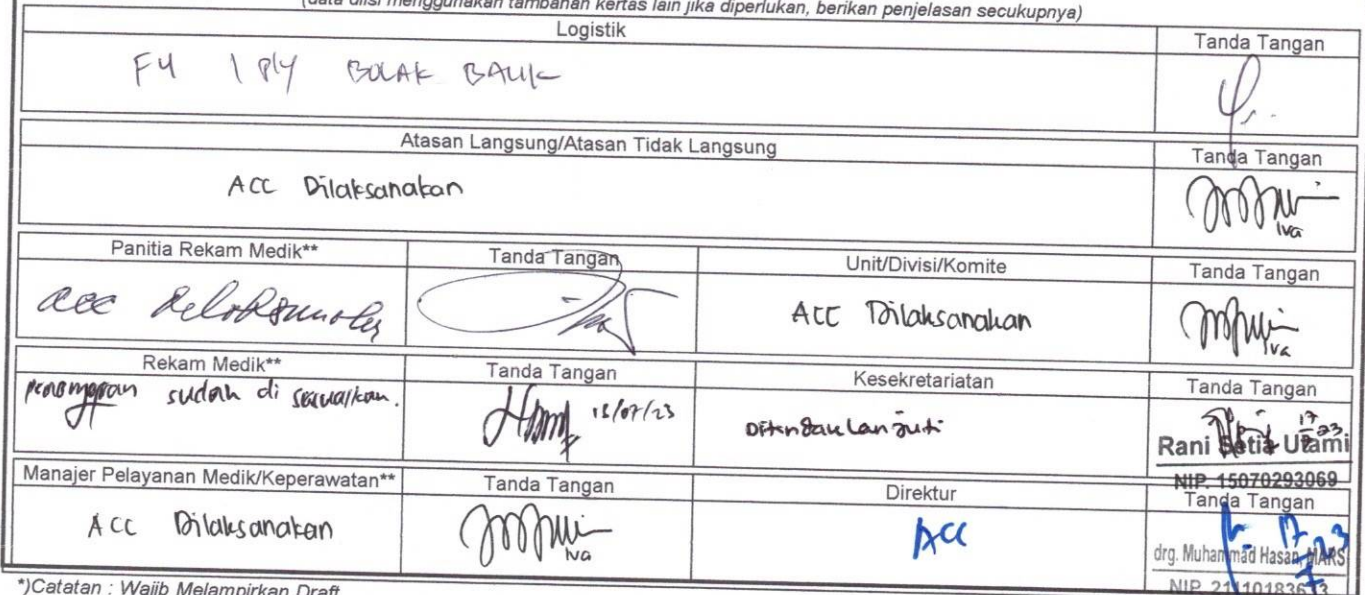 (data diisi menggunakan tambahan kertas lain jika diperlukan, berikan penjelasan secukupnya)
Logistik Tanda Tangan
F4 1 Ply BOLAK BALIK
Atasan Langsung/Atasan Tidak Langsung Tanda Tangan
ACC Dilaksanakan
Iva
Panitia Rekam Medik** Tanda Tangan Unit/Divisi/Komite Tanda Tangan
acc
ACC Dilaksanakan
Iva
Rekam Medik** Tanda Tangan Kesekretariatan Tanda Tangan
sudah di sesuaikan.
Rani Setia Utami
NIP. 15070293069
Manajer Pelayanan Medik/Keperawatan** Tanda Tangan Direktur Tanda Tangan
ACC Dilaksanakan
Iva
ACC
drg. Muhammad Hasan, MARS
*)Catatan : Wajib Melampirkan Draft